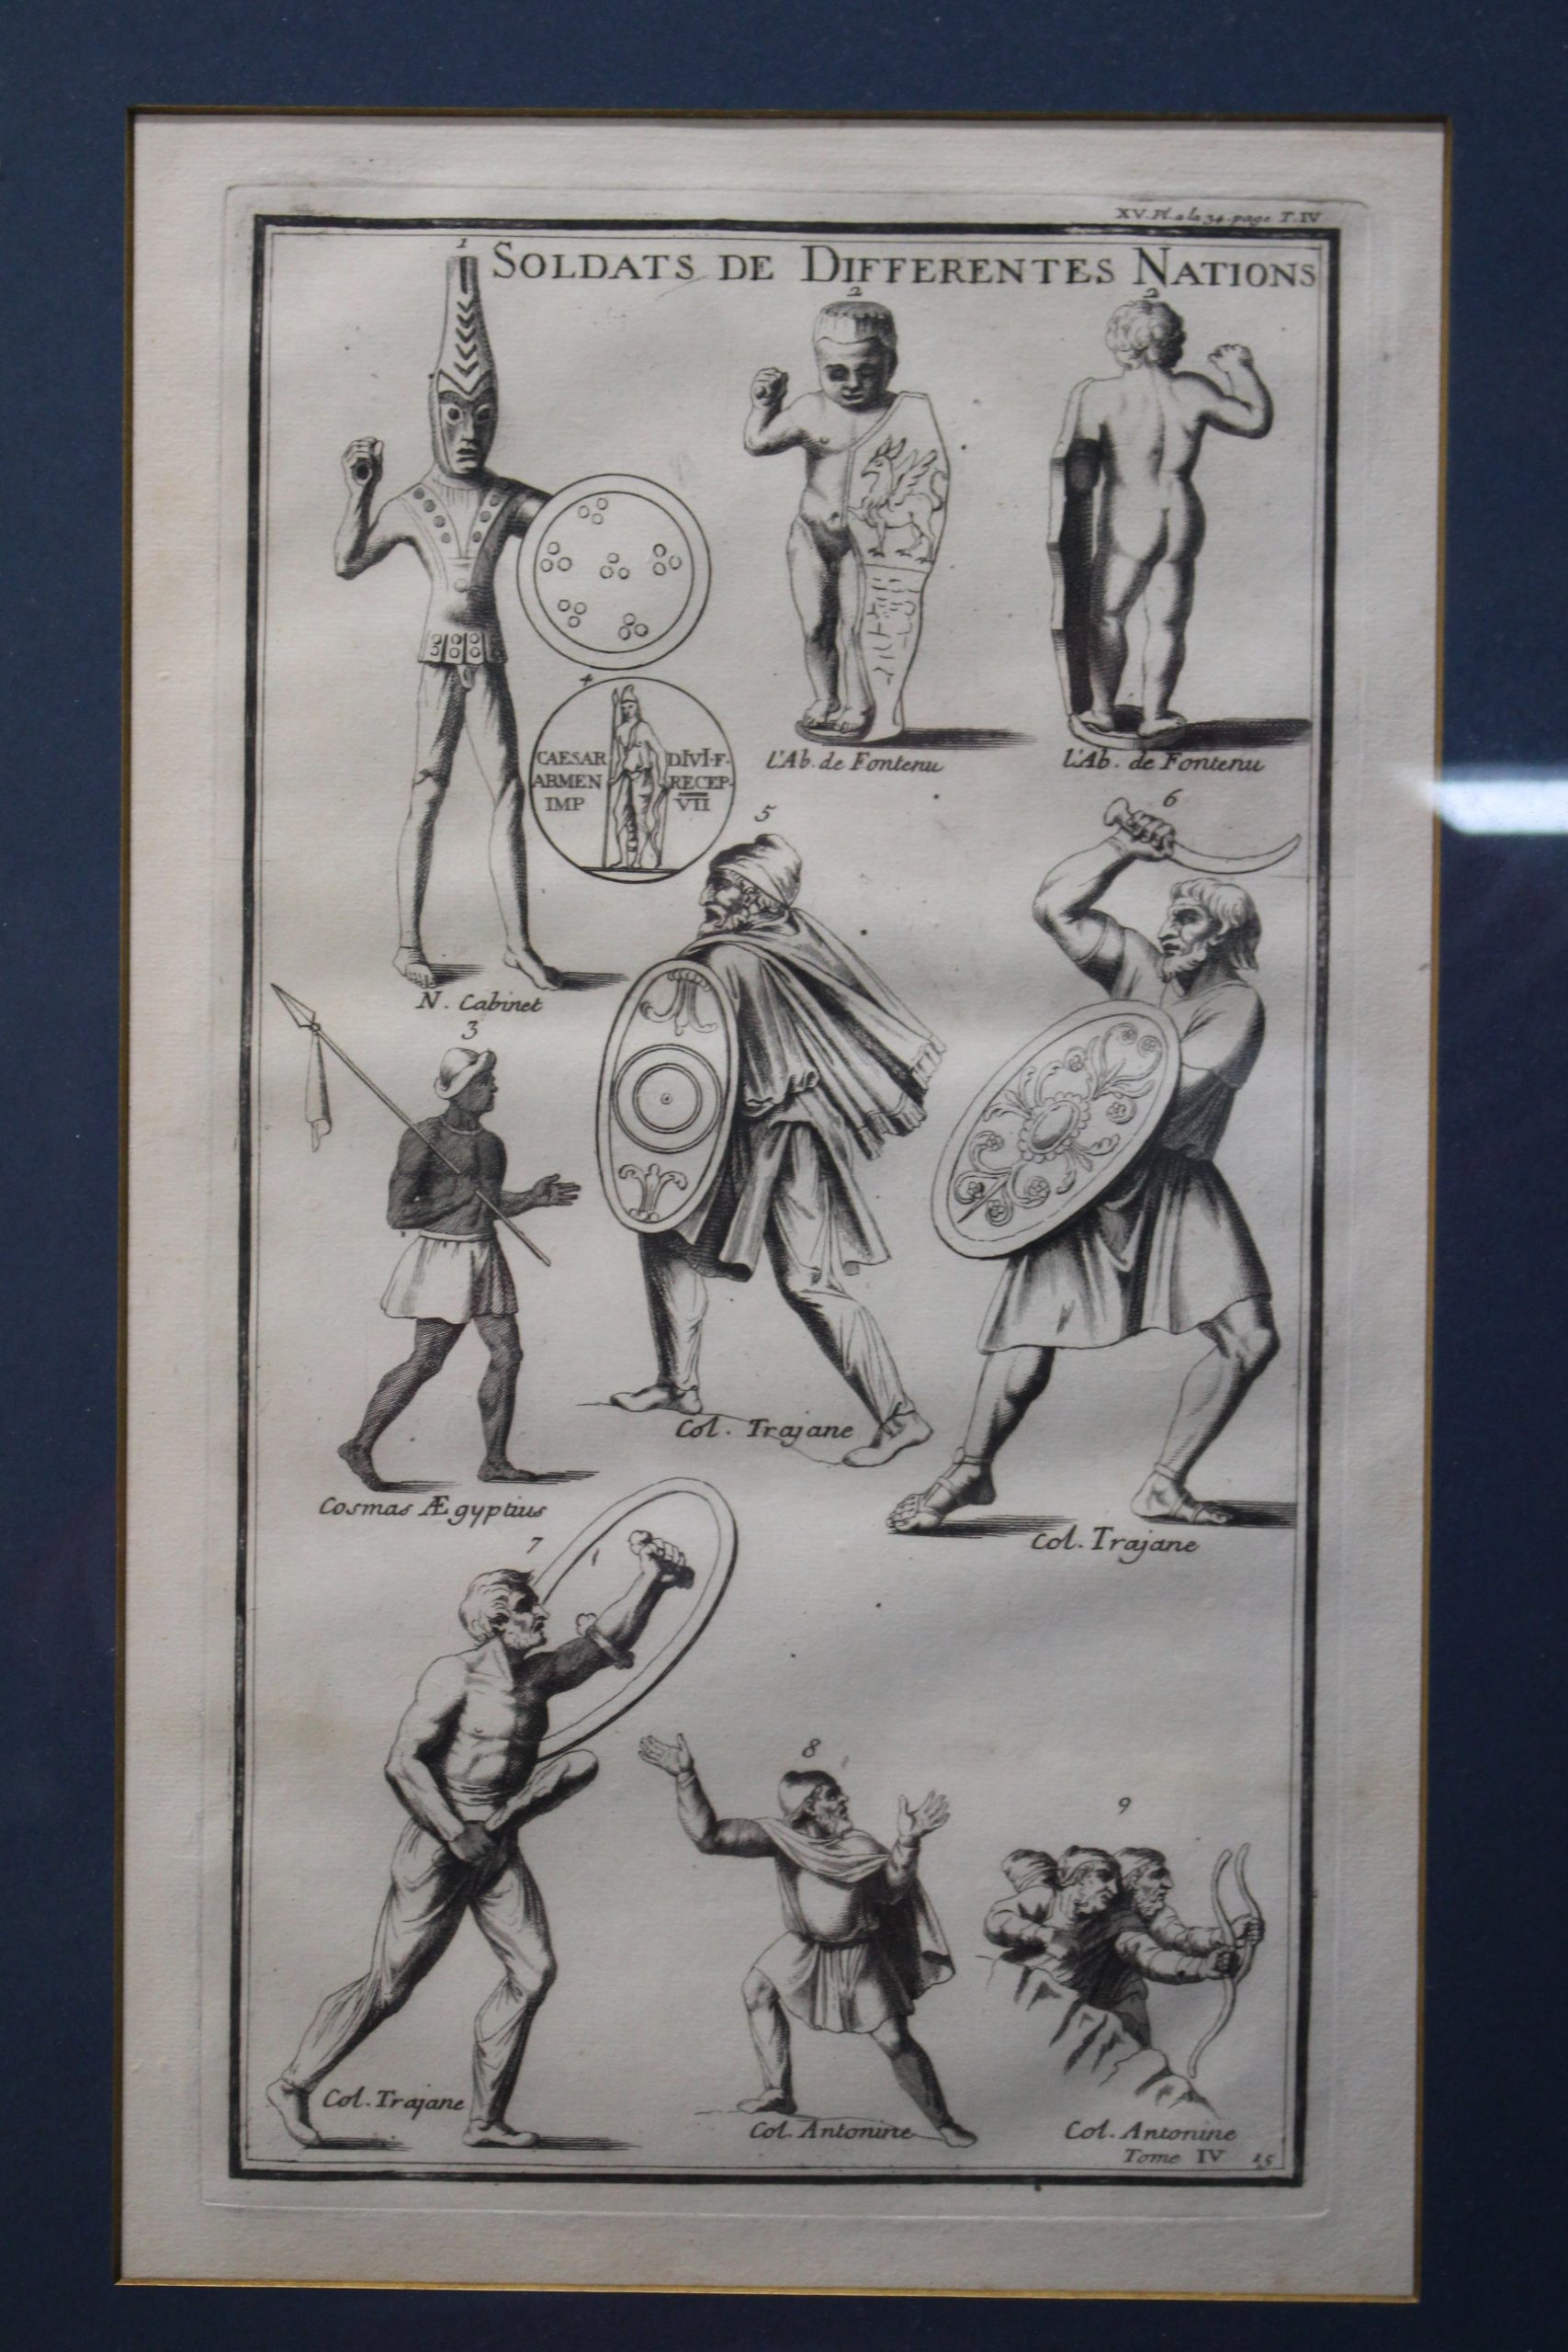 XV. Pl. a la 34. page T. IV
1
SOLDATS DE DIFFERENTES NATIONS
2
2
4
CAESAR DIVI·F·
ARMEN RECEP·
IMP VII
L'Ab. de Fontenu
L'Ab. de Fontenu
5
6
N. Cabinet
3
Col. Trajane
Cosmas Ægyptius
Col. Trajane
7
8
9
Col. Trajane
Col. Antonine
Col. Antonine
Tome IV 15